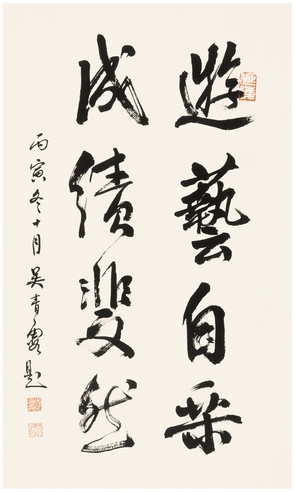 遊藝自樂
成績斐然
丙寅冬十月吳青霞題